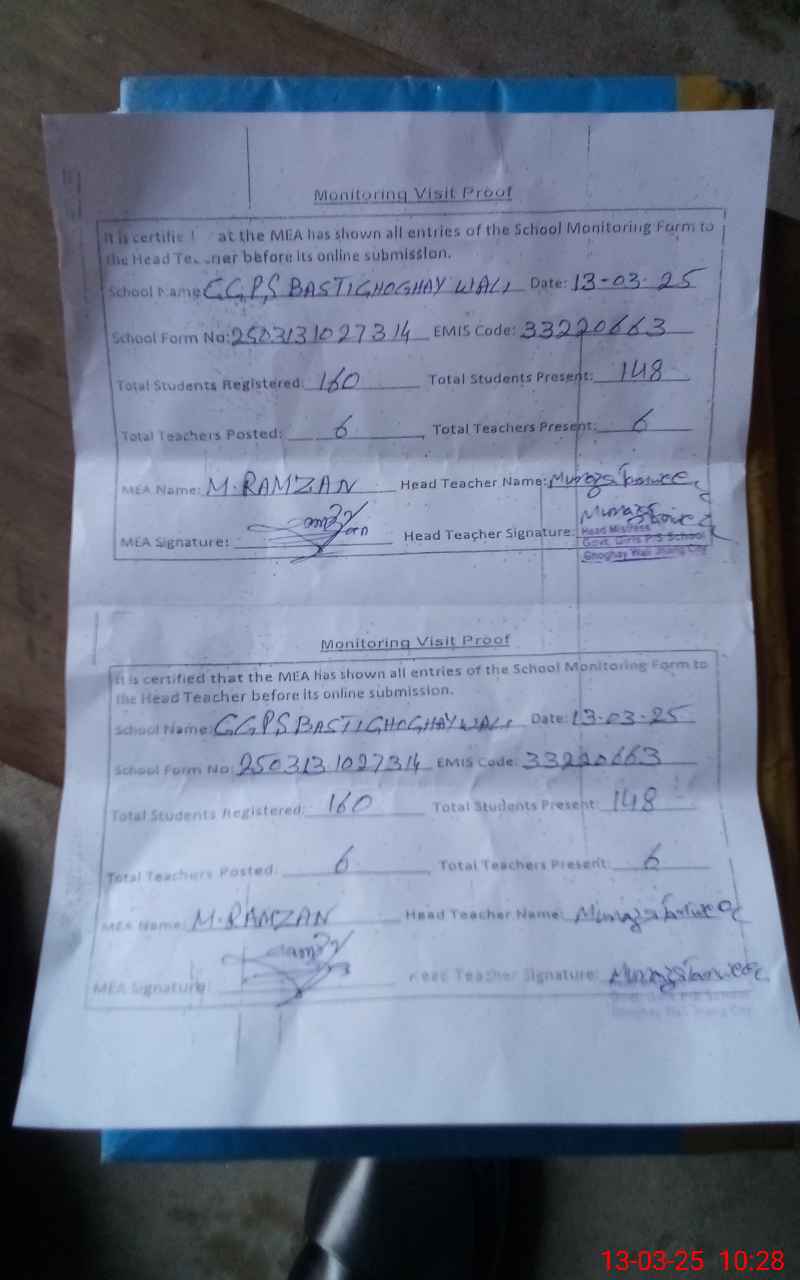 Monitoring Visit Proof
It is certifie at the MEA has shown all entries of the School Monitoring Form to
the Head Teacher before its online submission.
School Name: GGPS BASTI GHOGHAY WALI Date: 13-03-25
School Form No: 2503131027314 EMIS Code: 33220663
Total Students Registered: 160 Total Students Present: 148
Total Teachers Posted: 6 Total Teachers Present: 6
MEA Name: M. RAMZAN Head Teacher Name:
MEA Signature: Head Teacher Signature:
Head Mistress
Govt. Girls P/S School
Ghoghay Wali Jhang City
Monitoring Visit Proof
It is certified that the MEA has shown all entries of the School Monitoring Form to
the Head Teacher before its online submission.
School Name: GGPS BASTI GHOGHAY WALI Date: 13-03-25
School Form No: 2503131027314 EMIS Code: 33220663
Total Students Registered: 160 Total Students Present: 148
Total Teachers Posted: 6 Total Teachers Present: 6
MEA Name: M. RAMZAN Head Teacher Name:
MEA Signature: Head Teacher Signature:
Ghoghay Wali Jhang City
13-03-25 10:28